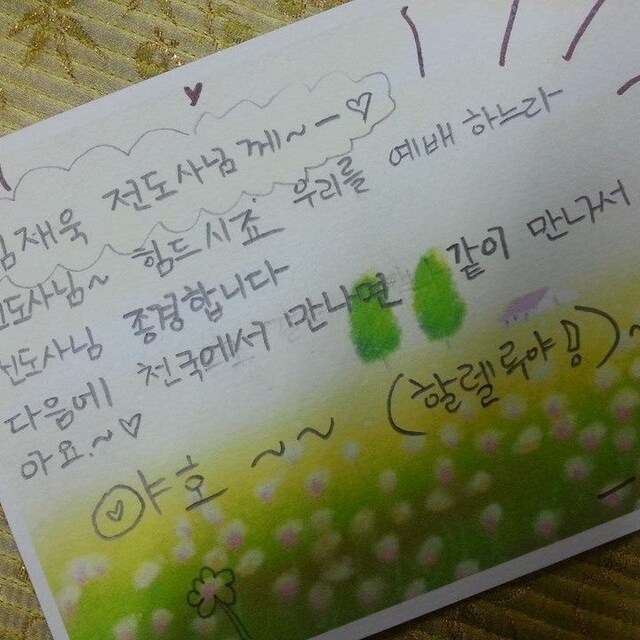 김재욱 전도사님께~ー♡
전도사님~ 힘드시죠. 우리를 예배하느라
전도사님 종경합니다
다음에 천국에서 만나면 같이 만나서
아요.~♡
야호 ~~ (할렐루야!)~